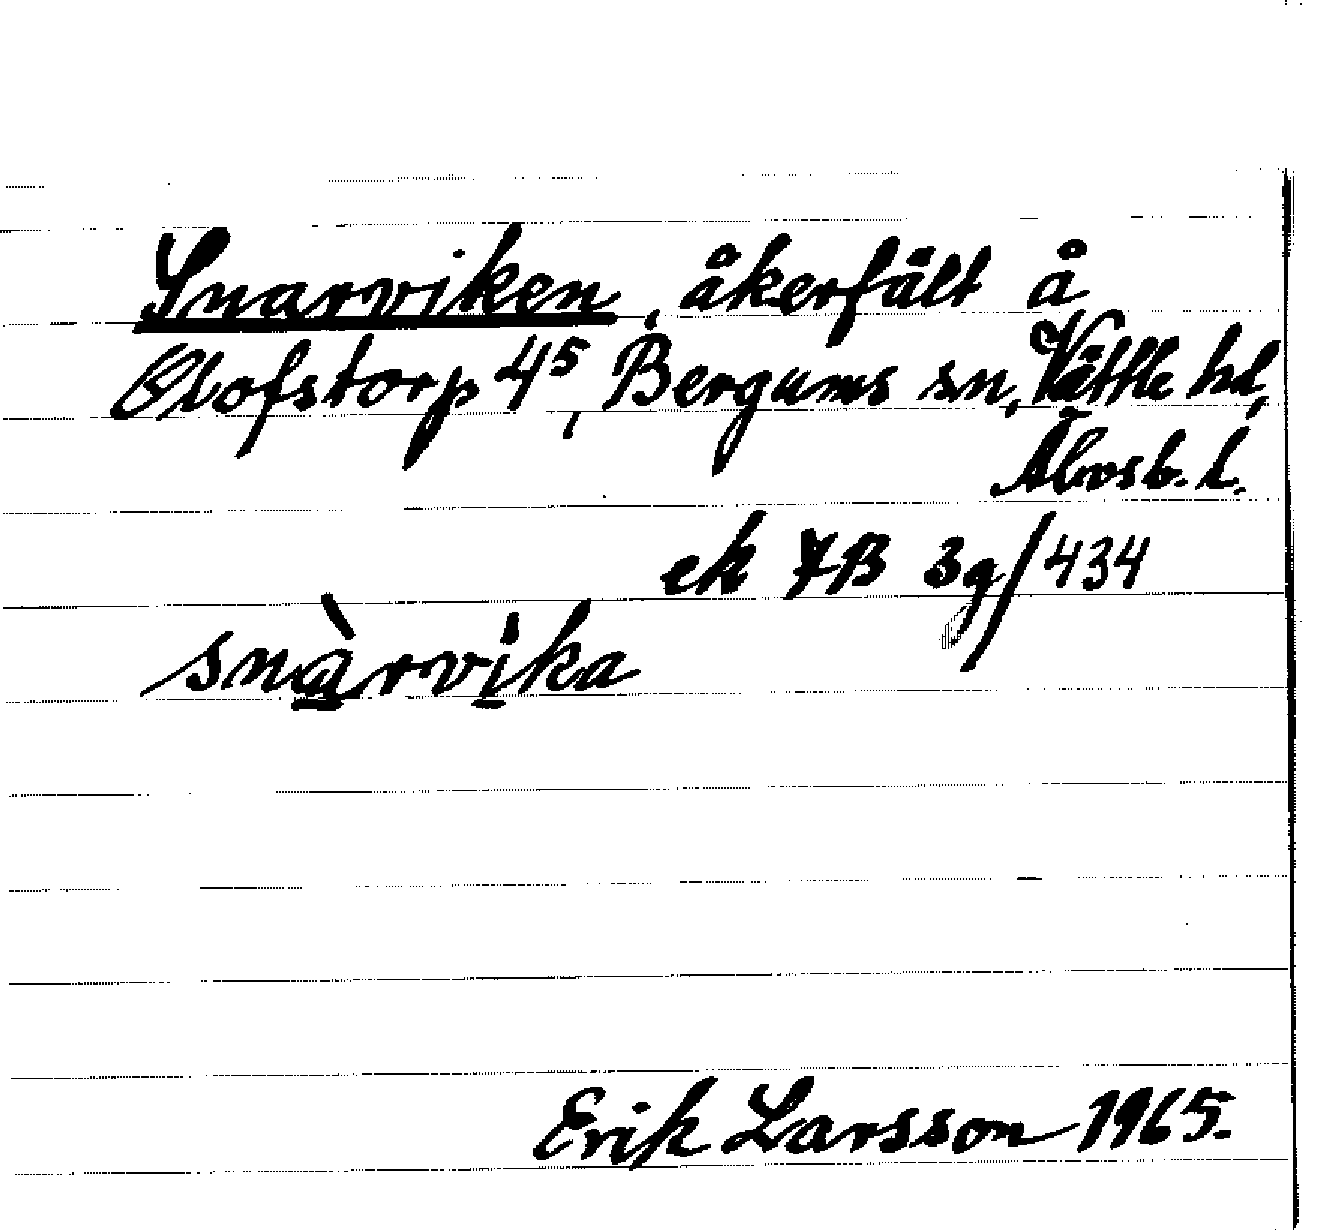 Snarviken, åkerfält å
Olofstorp 4⁵, Bergums sn, Vättle hd,
Älvsb. l.
ek 7B 3g/434
snàrvika
Erik Larsson 1965.